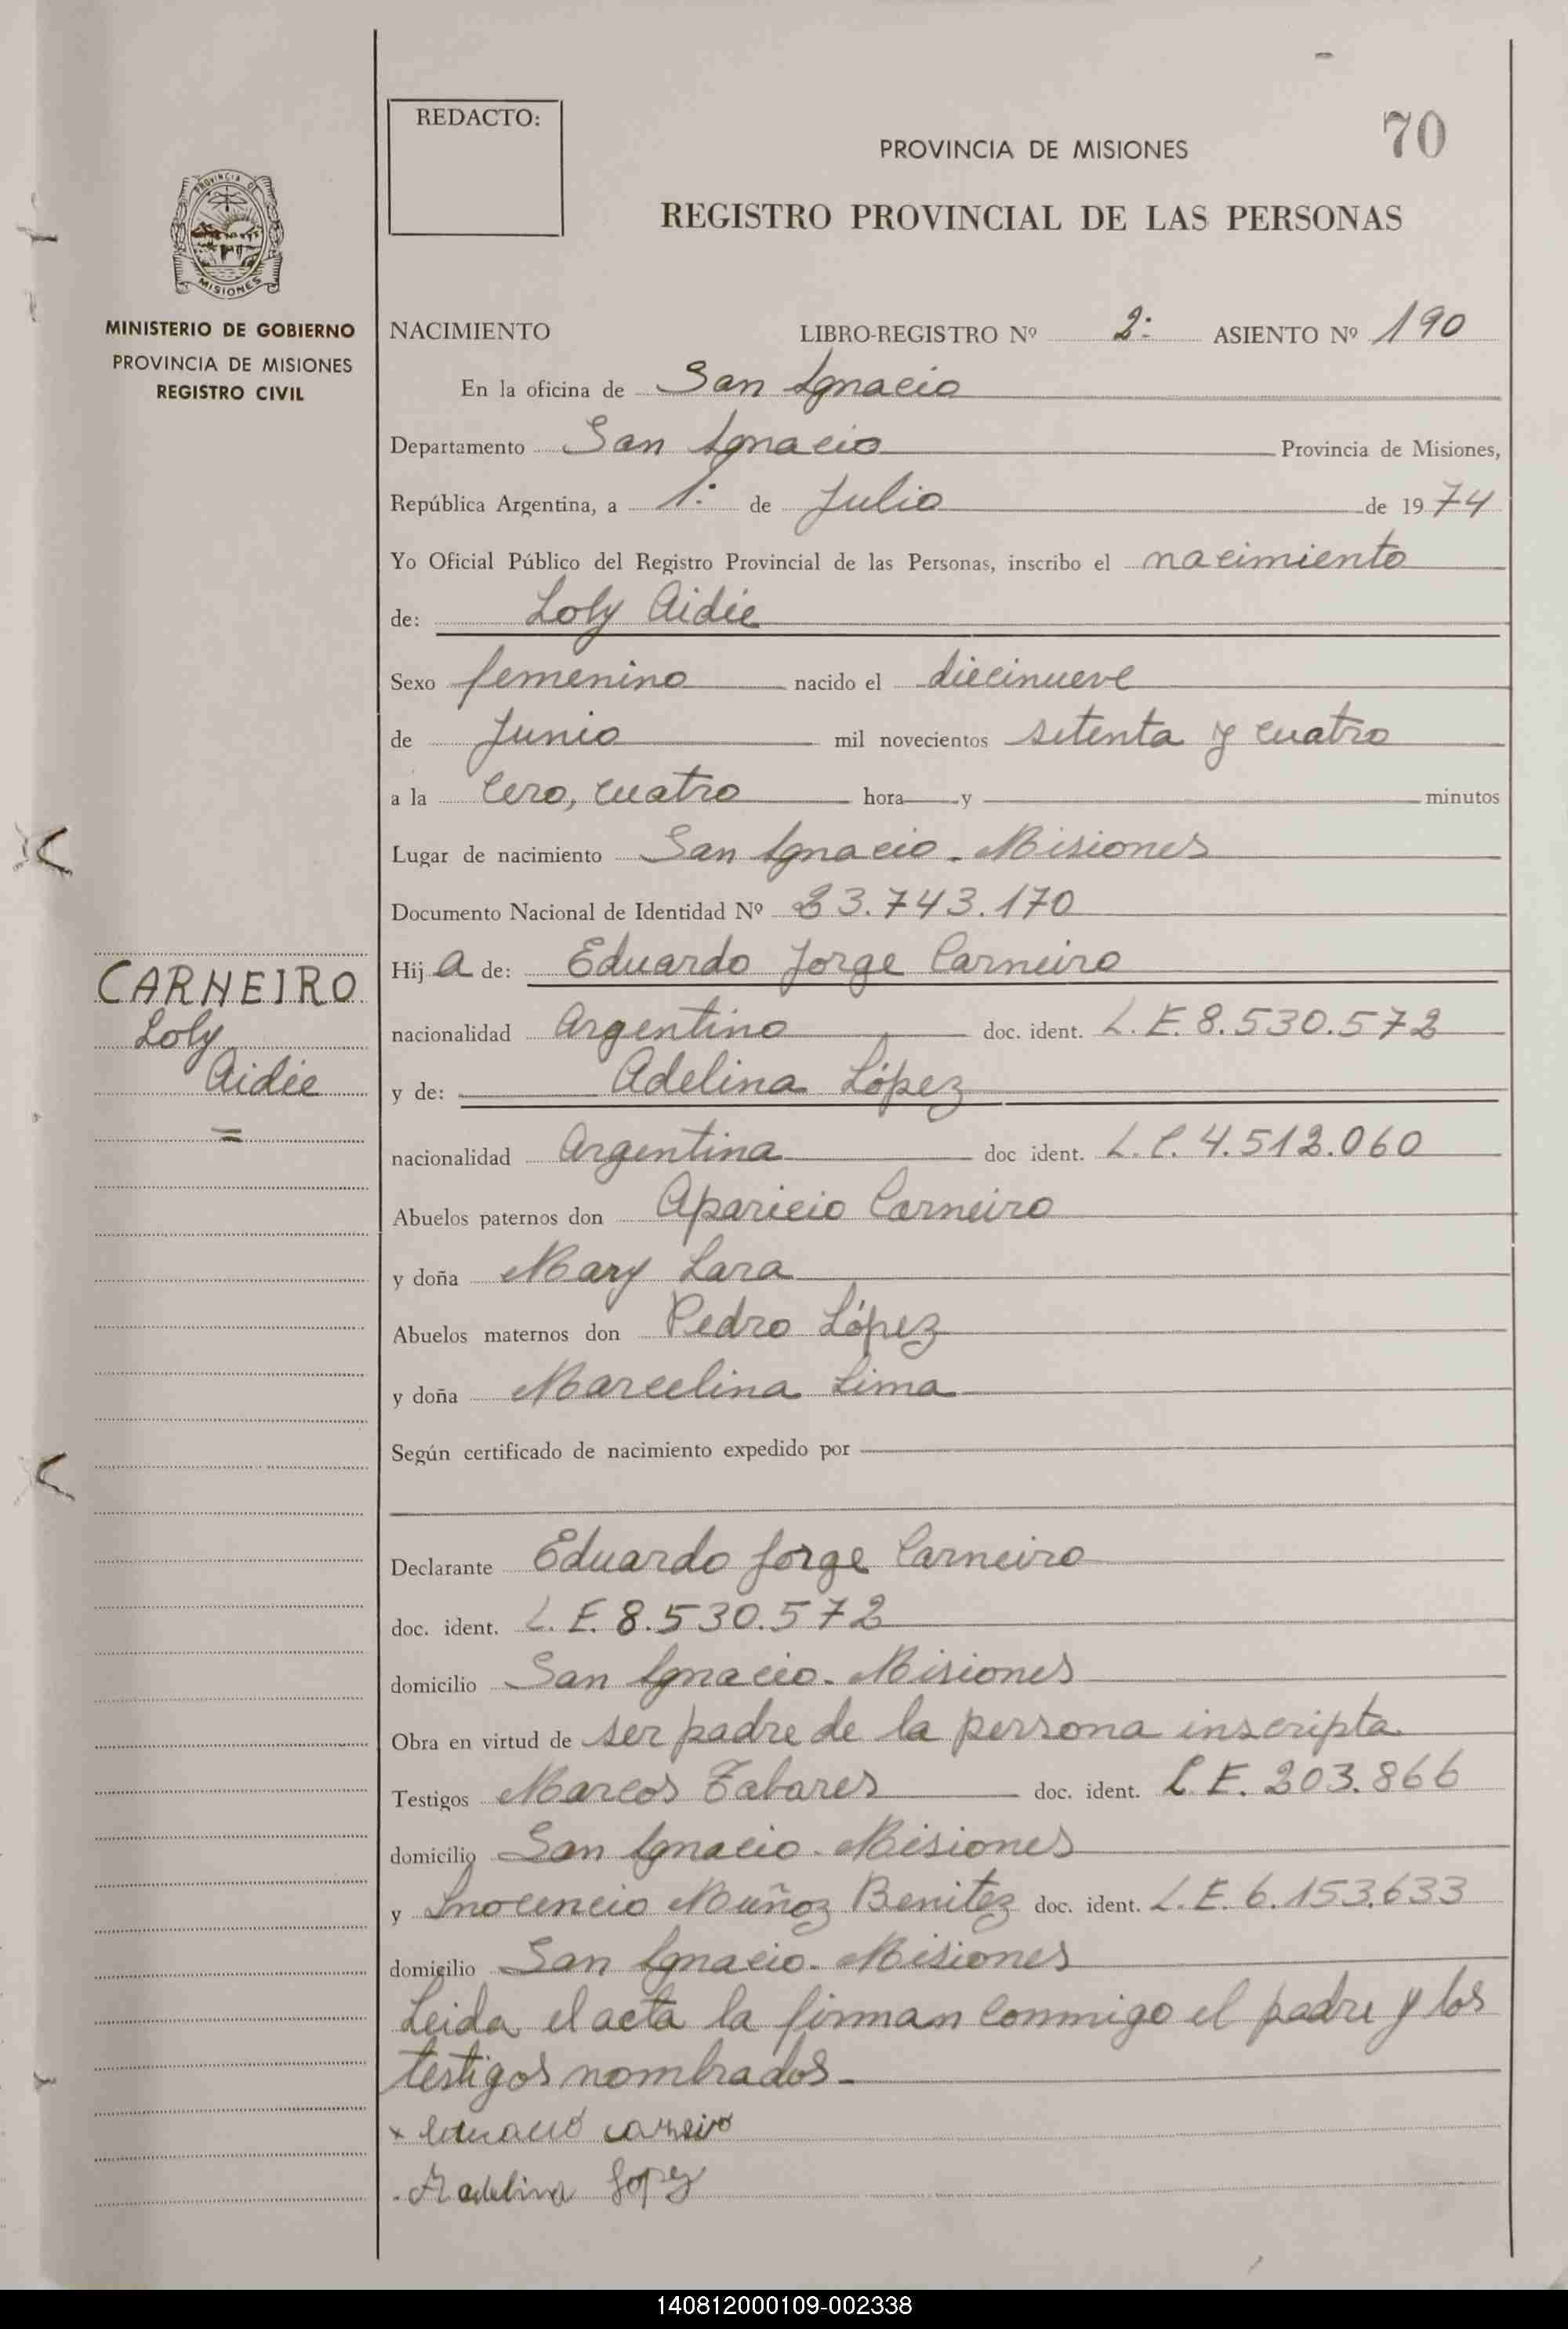 REDACTO:
70
PROVINCIA DE MISIONES
REGISTRO PROVINCIAL DE LAS PERSONAS
PROVINCIA DE
MISIONES
MINISTERIO DE GOBIERNO
PROVINCIA DE MISIONES
REGISTRO CIVIL
NACIMIENTO LIBRO-REGISTRO Nº 2: ASIENTO Nº 190
En la oficina de San Ignacio
Departamento San Ignacio Provincia de Misiones,
República Argentina, a 1: de Julio de 1974
Yo Oficial Público del Registro Provincial de las Personas, inscribo el nacimiento
de: Loly Aidée
Sexo femenino nacido el diecinueve
de Junio mil novecientos setenta y cuatro
a la Cero, cuatro hora y minutos
Lugar de nacimiento San Ignacio - Misiones
Documento Nacional de Identidad Nº 23.743.170
CARNEIRO
Loly
Aidée
=
Hij a de: Eduardo Jorge Carneiro
nacionalidad Argentino doc. ident. L. E. 8.530.572
y de: Adelina López
nacionalidad Argentina doc ident. L. C. 4.512.060
Abuelos paternos don Aparicio Carneiro
y doña Mary Lara
Abuelos maternos don Pedro López
y doña Marcelina Lima
Según certificado de nacimiento expedido por
Declarante Eduardo Jorge Carneiro
doc. ident. L. E. 8.530.572
domicilio San Ignacio - Misiones
Obra en virtud de ser padre de la persona inscripta
Testigos Marcos Tabares doc. ident. L. E. 203.866
domicilio San Ignacio - Misiones
y Inocencio Muñoz Benitez doc. ident. L. E. 6.153.633
domicilio San Ignacio - Misiones
Leida el acta la firman conmigo el padre y los
testigos nombrados -
x Eduardo Carneiro
Adelina Lopez
140812000109-002338